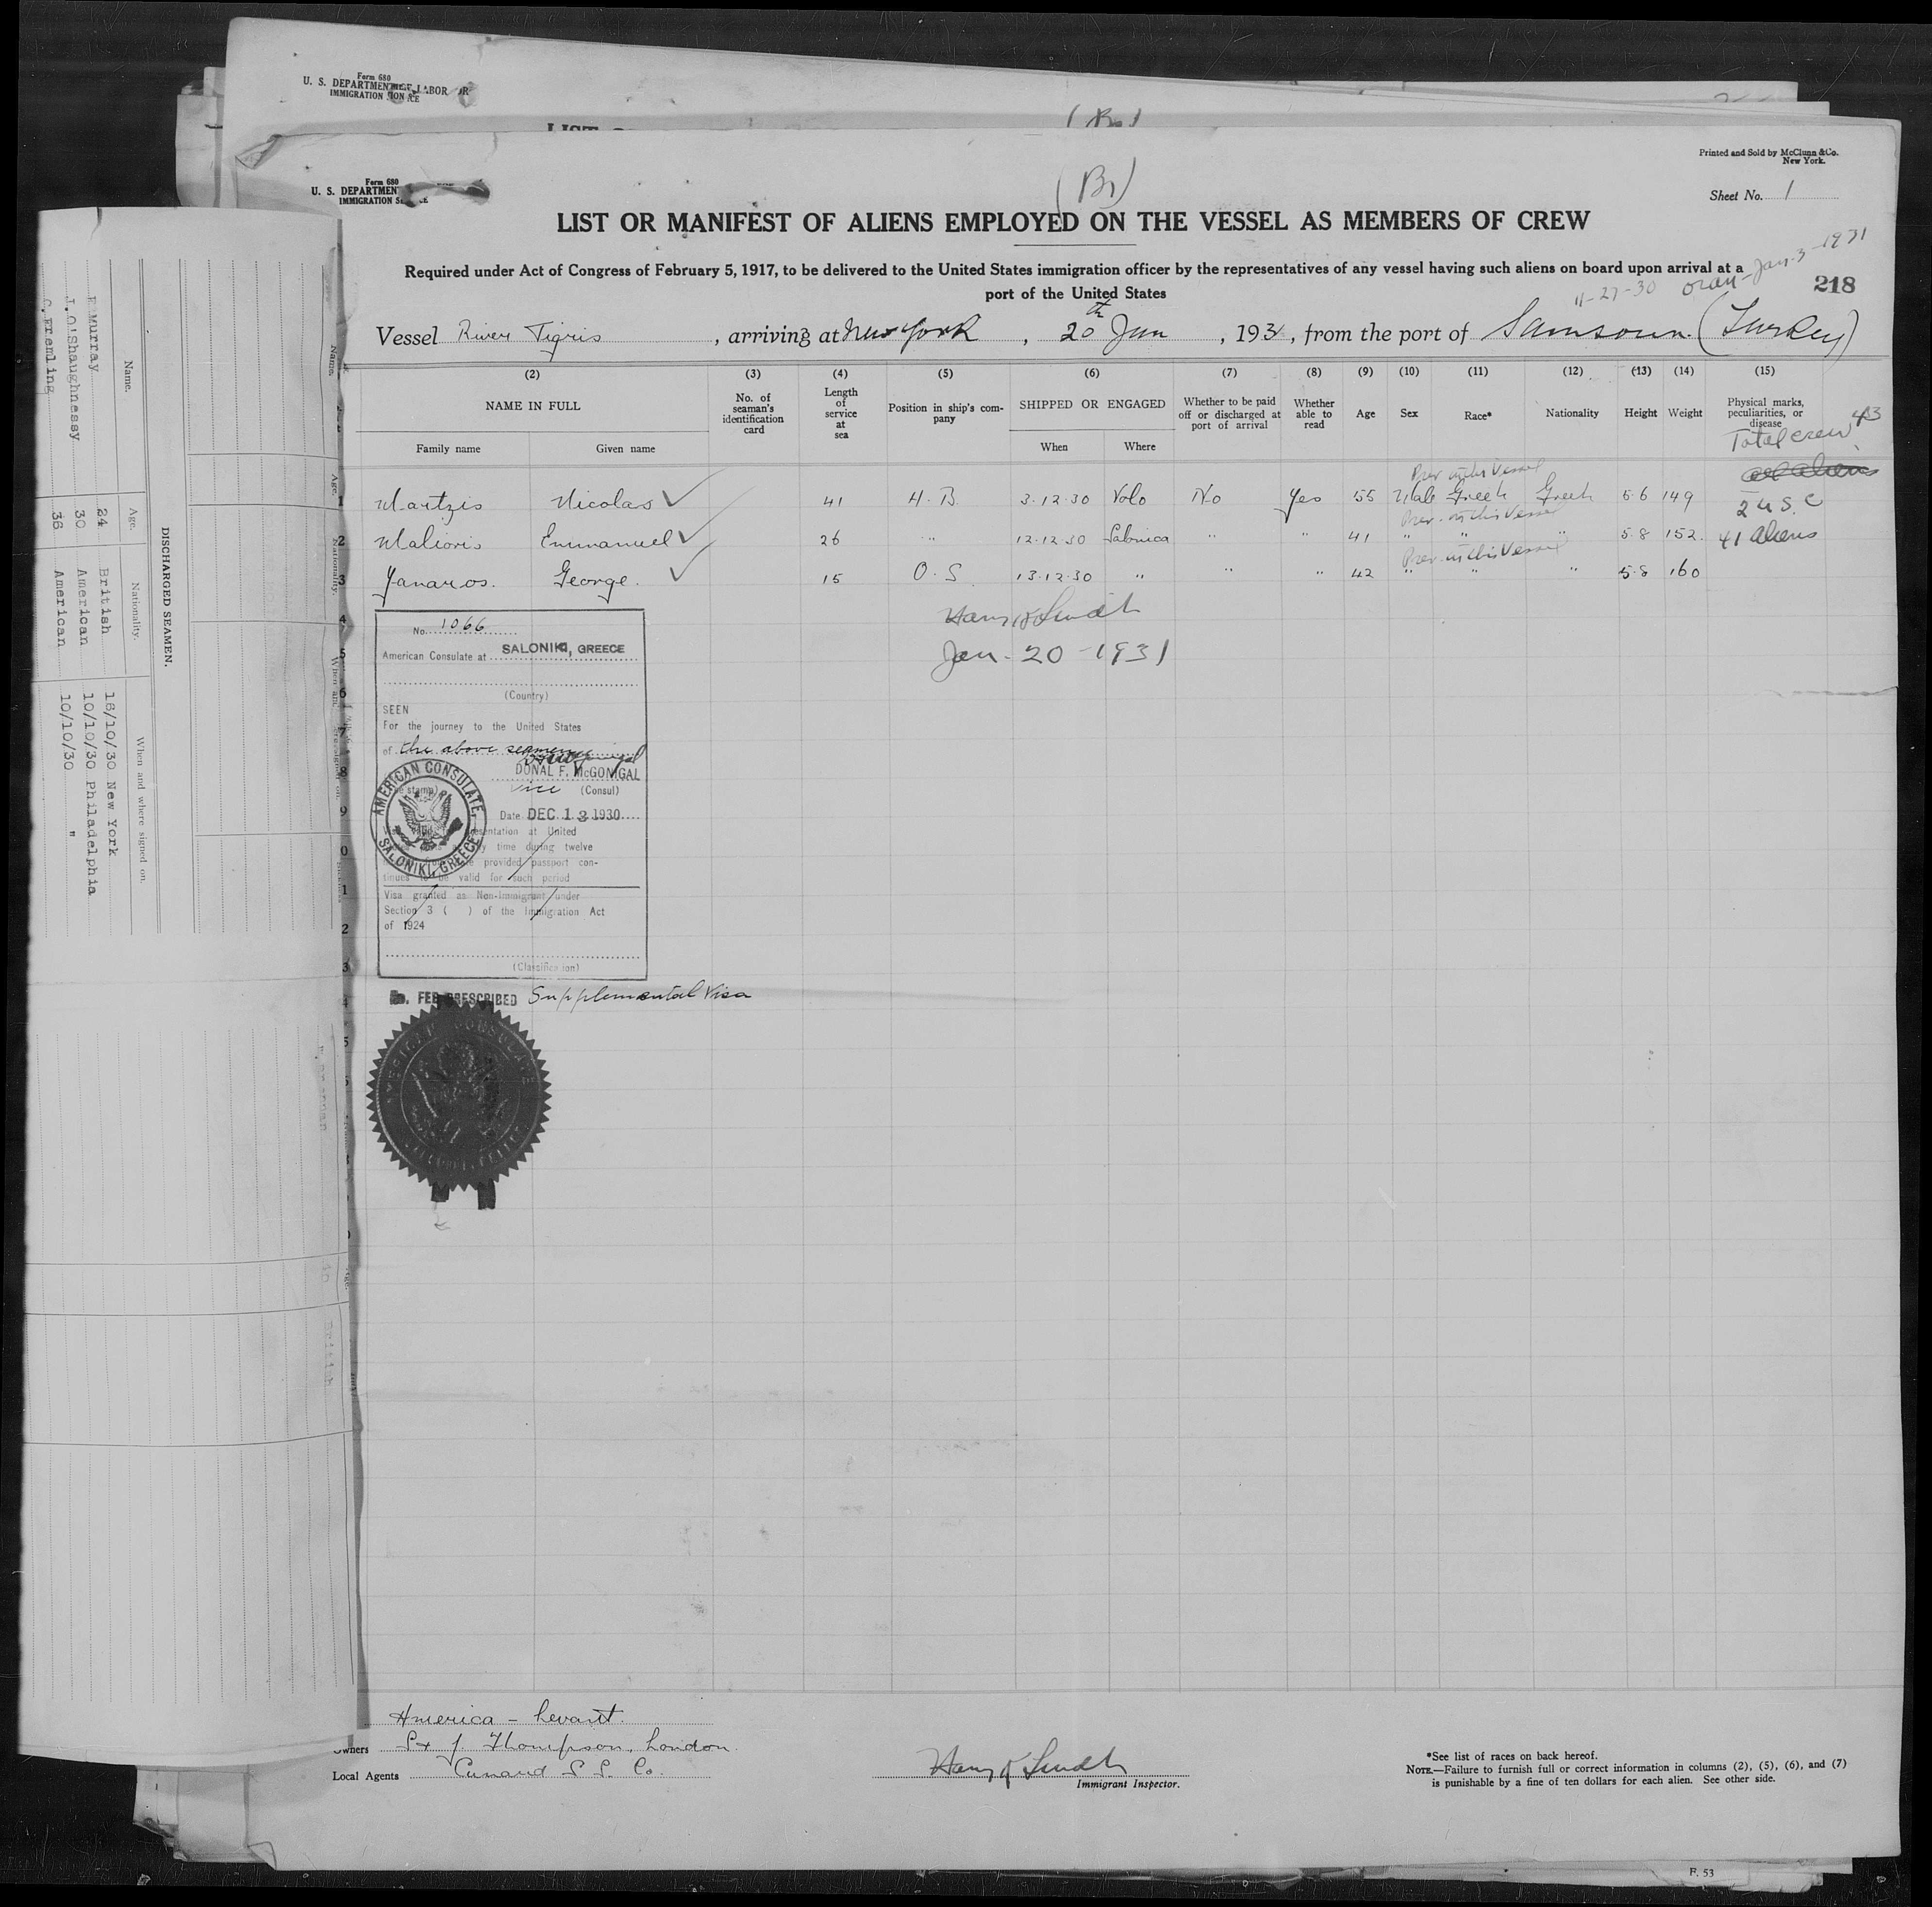 Form 680
U. S. DEPARTMENT LABOR
IMMIGRATION
(Br)
Form 680
U. S. DEPARTMENT
IMMIGRATION
Printed and Sold by McClunn & Co.
New York.
Sheet No. 1
(Br)
LIST OR MANIFEST OF ALIENS EMPLOYED ON THE VESSEL AS MEMBERS OF CREW
Required under Act of Congress of February 5, 1917, to be delivered to the United States immigration officer by the representatives of any vessel having such aliens on board upon arrival at a
port of the United States
11-27-30 Oran - Jan. 3 - 1931
218
Vessel River Tigris, arriving at New York, 20th Jan, 1931, from the port of Samsoun. (Turkey)
(2) (3) (4) (5) (6) (7) (8) (9) (10) (11) (12) (13) (14) (15)
NAME IN FULL
Family name
Given name
No. of seaman's identification card
Length of service at sea
Position in ship's company
SHIPPED OR ENGAGED
When
Where
Whether to be paid off or discharged at port of arrival
Whether able to read
Age
Sex
Race*
Nationality
Height
Weight
Physical marks, peculiarities, or disease
Total crew 43
all aliens
2 U.S. C
41 aliens
Prev. in this Vessel
1 Martzis Nicolas ✓ 41 A. B. 3.12.30 Volo No Yes 55 Male Greek Greek 5.6 149
Prev. in this Vessel
2 Malioris Emmanuel ✓ 26 " 12.12.30 Salonica " " 41 " " " 5.8 152
Prev. in this Vessel
3 Yanaros. George. ✓ 15 O. S. 13.12.30 " " " 42 " " " 5.8 160
Jan - 20 - 1931
No. 1066
American Consulate at SALONIKI, GREECE
(Country)
SEEN
For the journey to the United States
of the above seamen
DONAL F. McGONIGAL
Vice (Consul)
Date DEC 13 1930
AMERICAN CONSULATE, SALONIKI, GREECE
presentation at United
time during twelve
provided passport con-
tinues to be valid for such period
Visa granted as Non-Immigrant under
Section 3 ( ) of the Immigration Act
of 1924
(Classification)
FEE PRESCRIBED Supplemental Visa
America - Levant.
Owners S & J. Thompson, London.
Local Agents Cunard S. S. Co.
Immigrant Inspector.
*See list of races on back hereof.
NOTE.—Failure to furnish full or correct information in columns (2), (5), (6), and (7)
is punishable by a fine of ten dollars for each alien. See other side.
F. 53
DISCHARGED SEAMEN.
Name. Age. Nationality. When and where signed on.
Murray 24 British 18/10/30 New York
J. O'Shaughnessy 30 American 10/10/30 Philadelphia
C. Fremling 36 American 10/10/30 "